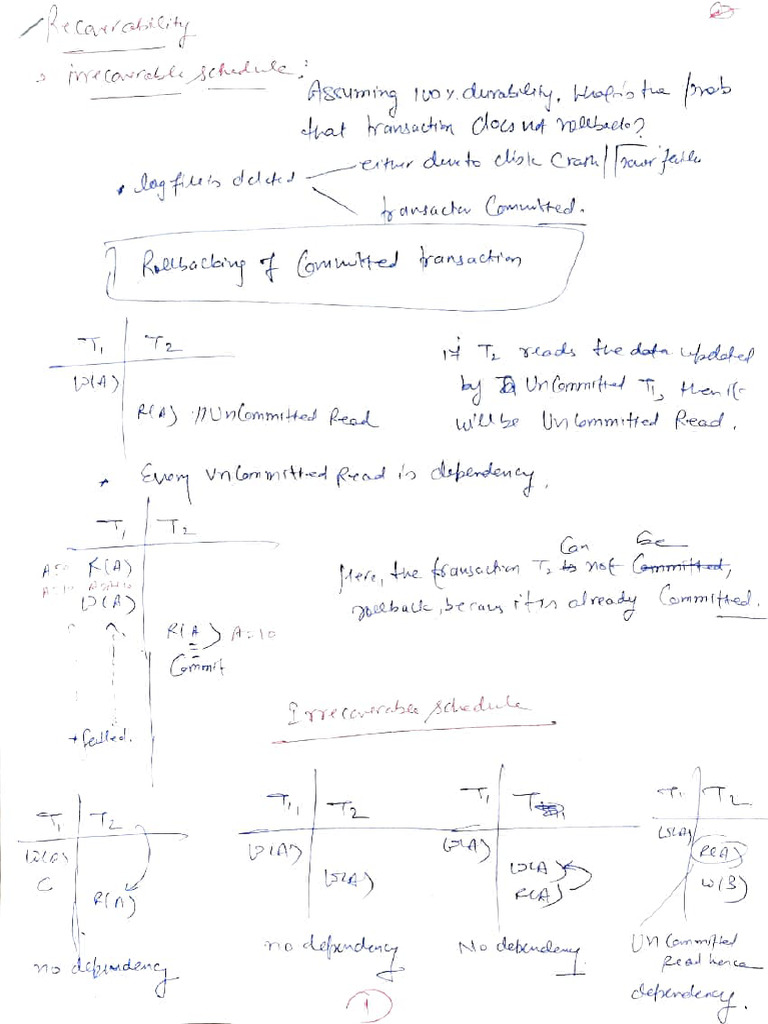 Recoverability
irrecoverable schedule:
Assuming 100% durability, what is the prob
that transaction does not rollback?
* log file is deleted
either due to disk crash / Power failure
transaction Committed.
Rollbacking of Committed transaction
T1 T2
W(A)
R(A) // UnCommitted Read
if T2 reads the data updated
by UnCommitted T1, then it
will be UnCommitted Read.
* Every UnCommitted Read is dependency.
T1 T2
R(A)
W(A)
R(A) A=10
Commit
* failed.
Here, the transaction T2 Can not be
rollback, because it is already Committed.
Irrecoverable schedule
T1 T2
W(A)
C
R(A)
no dependency
T1 T2
W(A)
W(A)
no dependency
T1
W(A)
W(A)
R(A)
No dependency
T1 T2
W(A)
R(A)
W(B)
UnCommitted
Read hence
dependency.
1